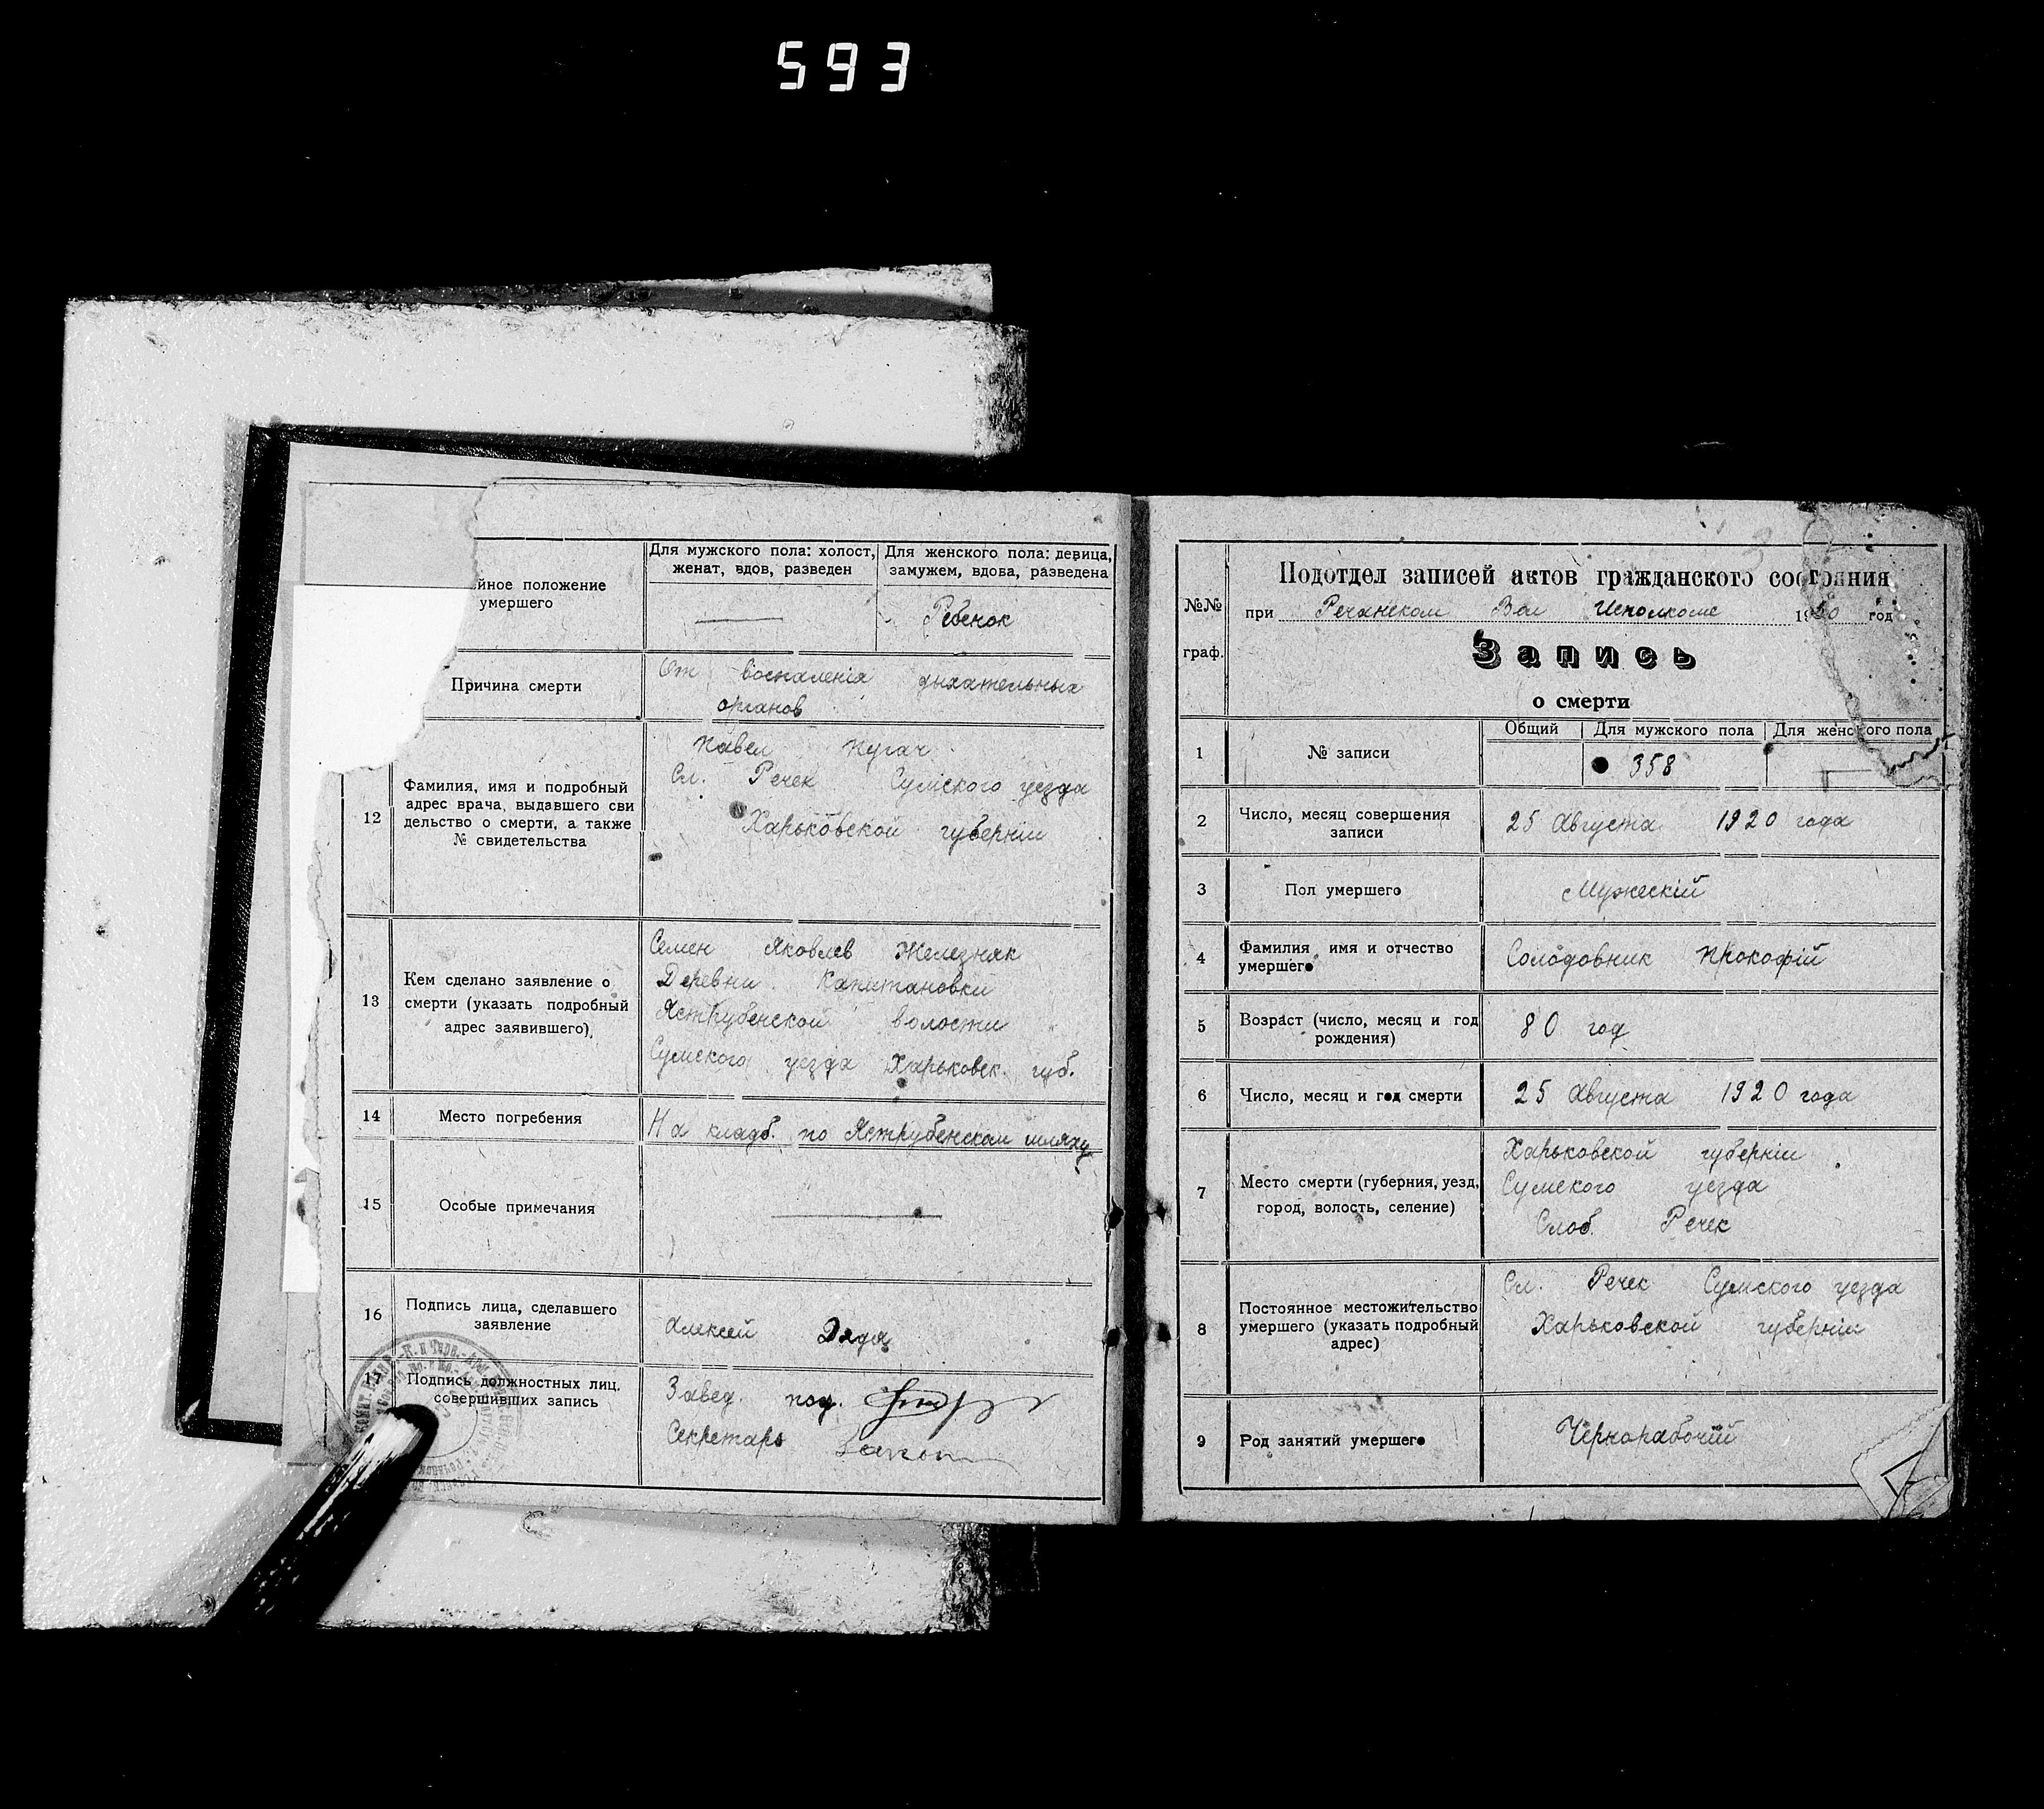 593
йное положение
умершего
Для мужского пола: холост,
женат, вдов, разведен
Для женского пола: девица,
замужем, вдова, разведена
Ребенок
Причина смерти
От воспаленія дыхательных
органов
12
Фамилия, имя и подробный
адрес врача, выдавшего сви
дельство о смерти, а также
№ свидетельства
Павел Пугач
Сл. Речек Сумского уезда
Харьковской губерніи
13
Кем сделано заявление о
смерти (указать подробный
адрес заявившего)
Семен Яковлев Железняк
Деревни Капитановки
Яструбенской волости
Сумского уезда Харьковск. губ.
14
Место погребения
На кладб. по Яструбенском шляху
15
Особые примечания
16
Подпись лица, сделавшего
заявление
Алексей Дядя
17
Подпись должностных лиц,
совершивших запись
Завед. под.
Секретарь
№№
граф.
Подотдел записей актов гражданского состояния
при Речанском Вол Исполкоме 1920 год
Запись
о смерти
1
№ записи
Общий
Для мужского пола
Для женского пола
358
2
Число, месяц совершения
записи
25 Августа 1920 года
3
Пол умершего
Мужескій
4
Фамилия имя и отчество
умершего
Солодовник Прокофій
5
Возраст (число, месяц и год
рождения)
80 год
6
Число, месяц и год смерти
25 Августа 1920 года
7
Место смерти (губерния, уезд,
город, волость, селение)
Харьковской губерніи
Сумского уезда
Слоб. Речек
8
Постоянное местожительство
умершего (указать подробный
адрес)
Сл. Речек Сумского уезда
Харьковской губерніи
9
Род занятий умершего
Чернорабочій